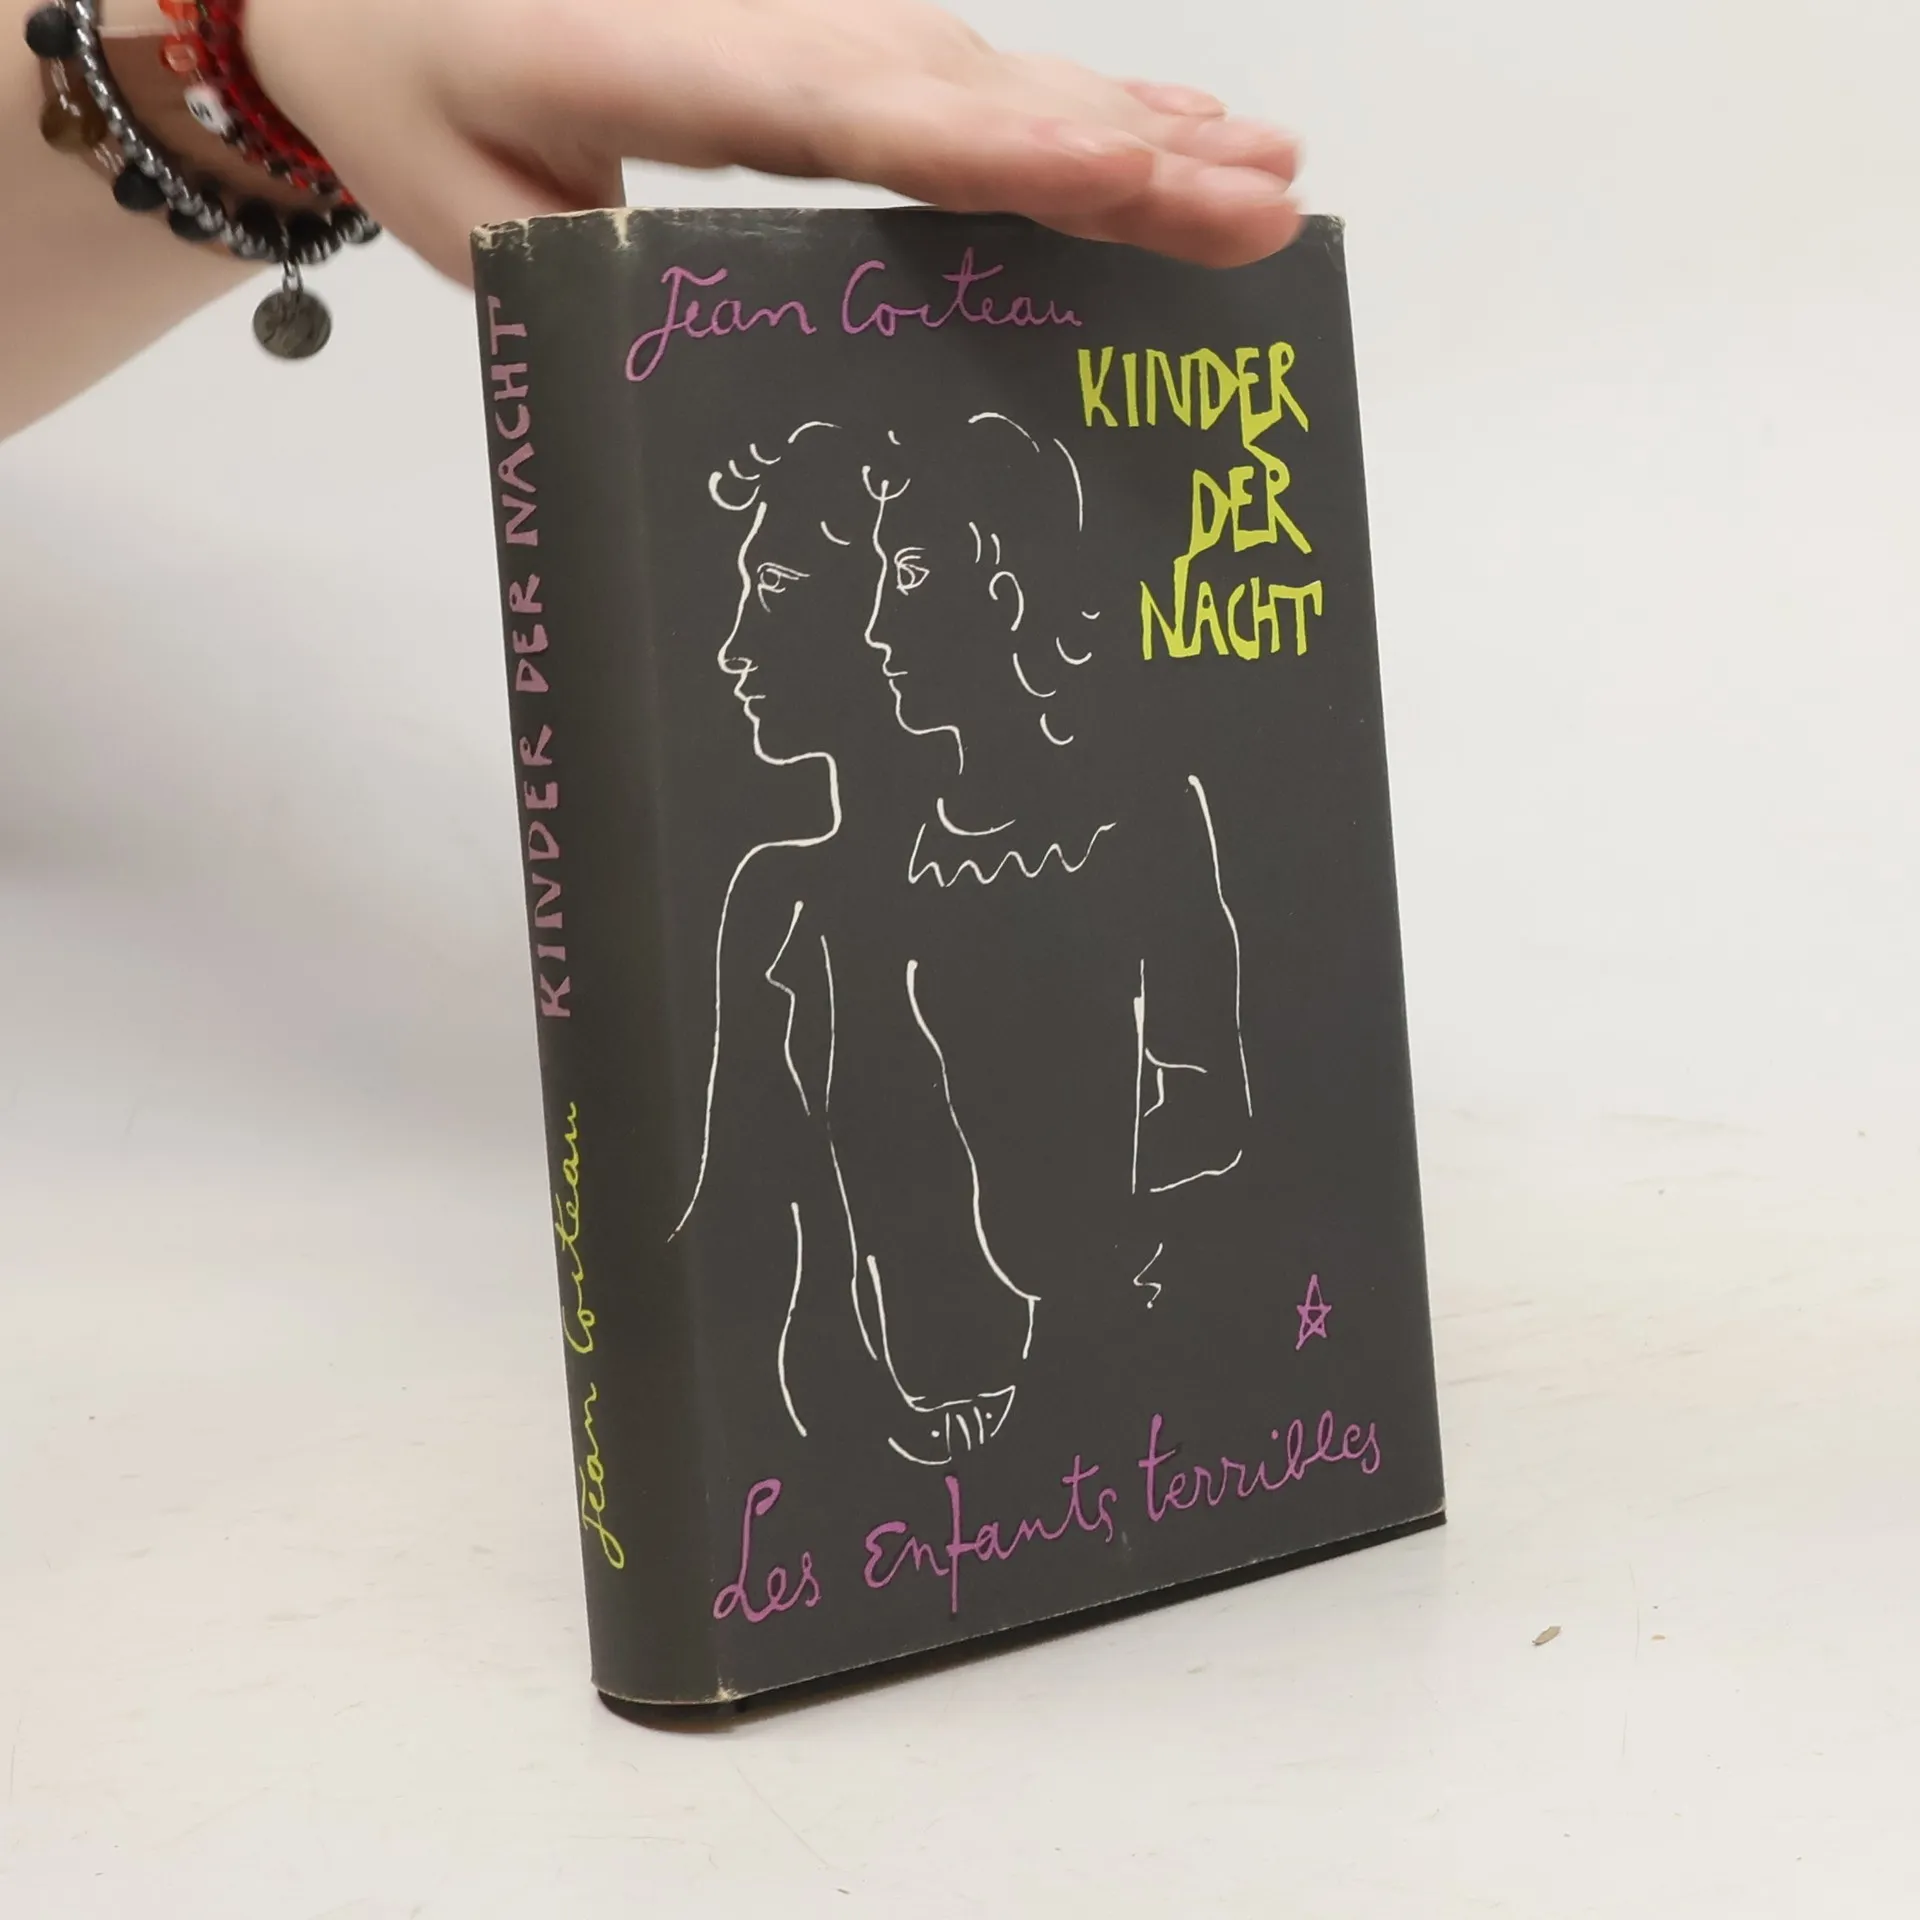 Jean Cocteau
KINDER
DER
NACHT
Les Enfants terribles
KINDER DER NACHT
Jean Cocteau
S